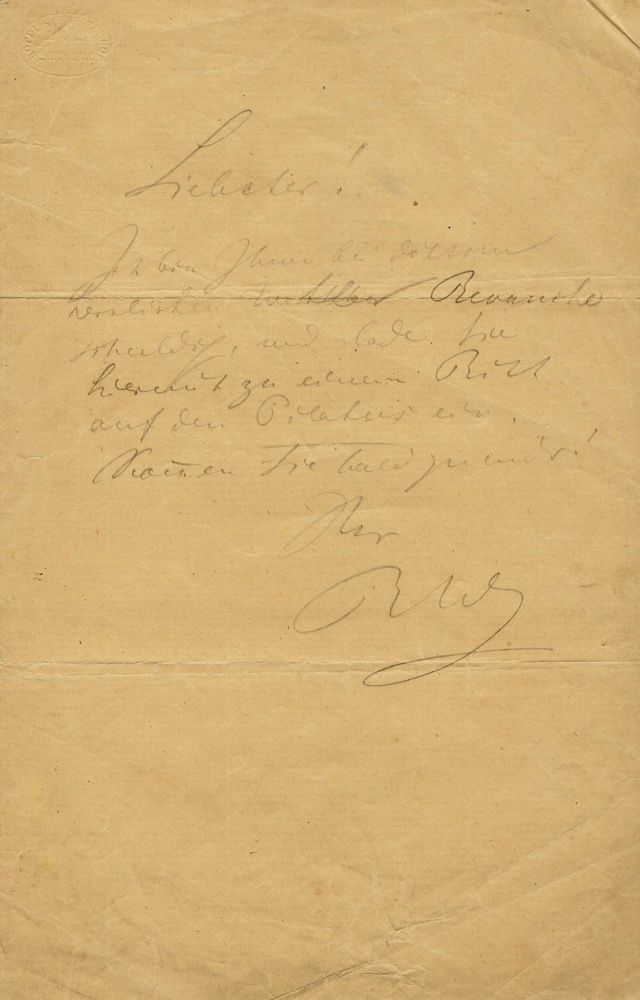 Liebster!
Ich bin Ihnen bei diesem
herrlichen Wetter Revanche
schuldig, und lade Sie
hiermit zu einem Ritt
auf den Pilatus ein.
Kom̄en Sie bald zu mir!
Ihr
RW